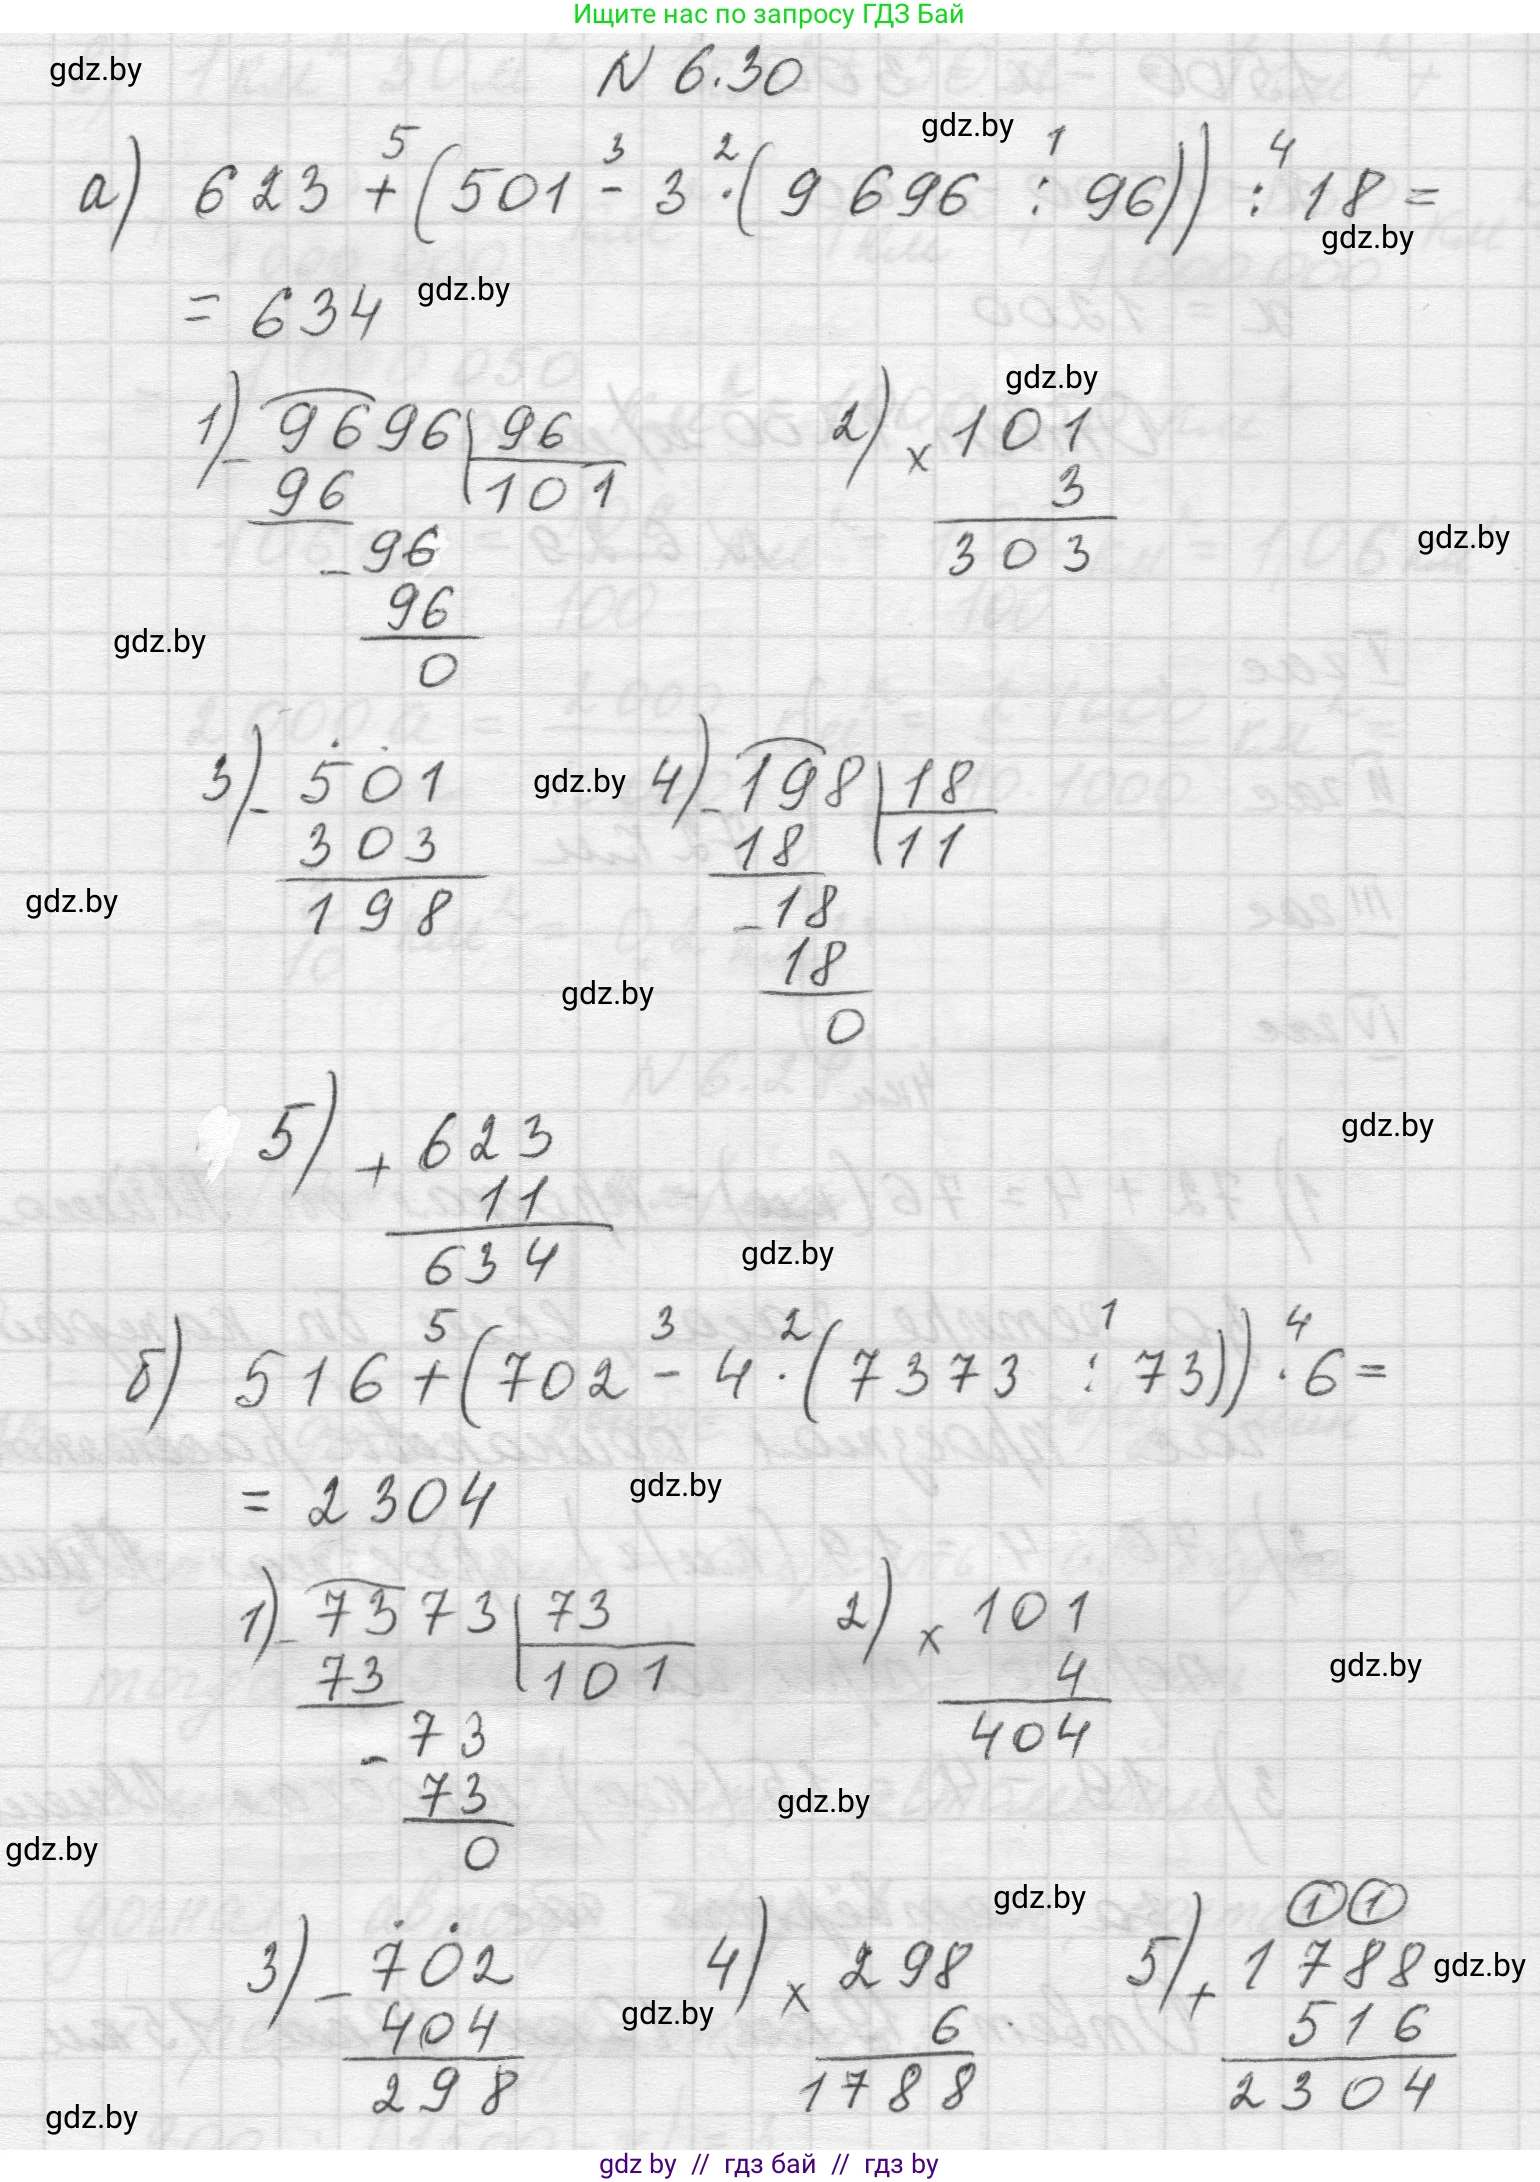 Ищите нас по запросу ГДЗ Бай
gdz.by
N 6.30
gdz.by
5 3 2 1 4
а) 623 + (501 - 3 · (9 696 : 96)) : 18 =
gdz.by
= 634
gdz.by
gdz.by
1) - 9696 | 96
96 | 101
- 96
96
0
2) × 101
3
303
gdz.by
gdz.by
3) - 501
303
198
gdz.by
4) - 198 | 18
18 | 11
- 18
18
0
gdz.by
gdz.by
5) + 623
11
634
gdz.by
gdz.by
5 3 2 1 4
б) 516 + (702 - 4 · (7373 : 73)) · 6 =
= 2304
gdz.by
1) - 7373 | 73
73 | 101
- 73
73
0
2) × 101
4
404
gdz.by
gdz.by
gdz.by
gdz.by
3) - 702
404
298
4) × 298
6
1788
gdz.by
1 1
5) + 1788
516
2304
gdz.by
gdz.by
gdz by // гдз бай // гдз by